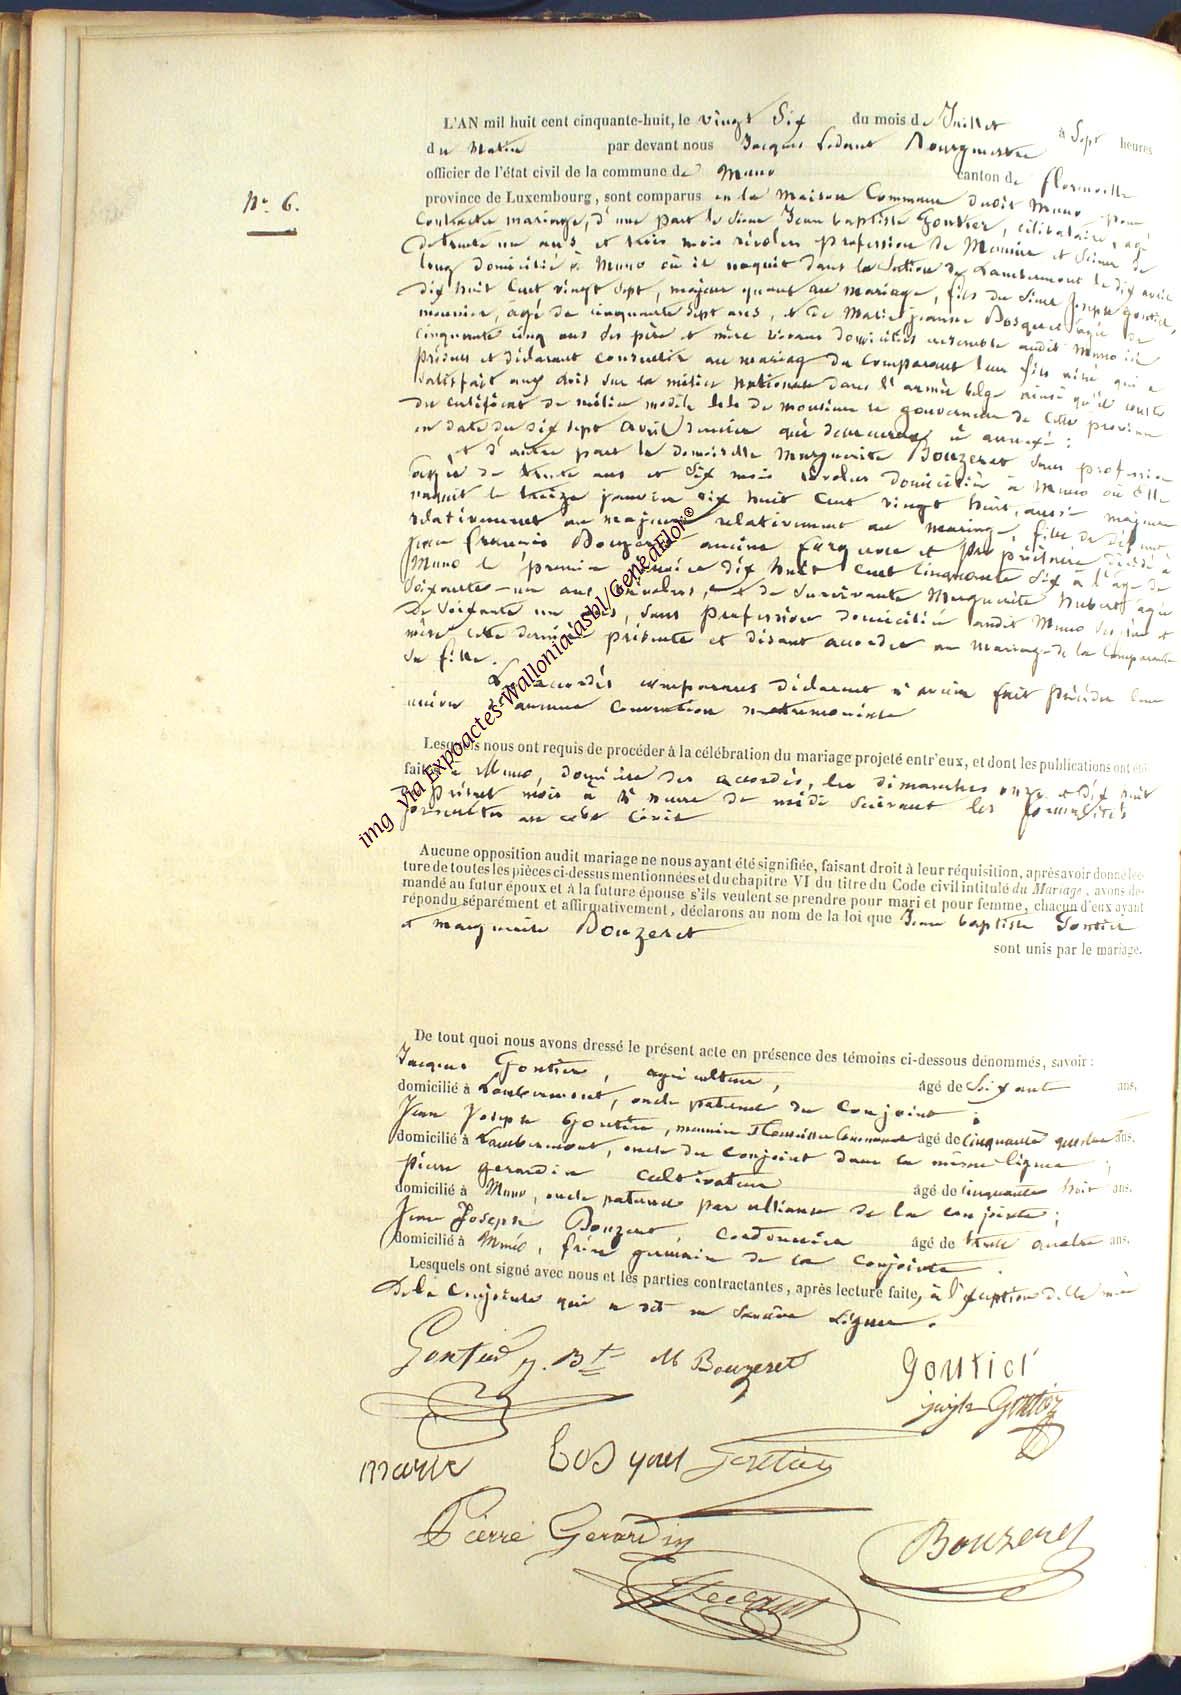 N° 6.
L'AN mil huit cent cinquante-huit, le vingt Six du mois de Juillet à Sept heures
du Matin par devant nous Jacques Ledant Bourgmestre
officier de l'état civil de la commune de Muno canton de florenville
province de Luxembourg, sont comparus en la maison Commune dudit Muno pour
Contracter mariage, d'une part le Sieur Jean baptiste Gontier, célibataire, agé
de trente un ans et trois mois révolus profession de Meunier et Scieur de
long domicilié à Muno où il naquit dans la Section de Lambermont le dix avril
dix huit Cent vingt Sept, majeur quant au mariage, fils du Sieur Joseph Gontier,
meunier, âgé de cinquante Sept ans, et de Marie jeanne Bosquet agée de
cinquante cinq ans Ses père et mère domiciliés ensemble audit Muno ici
présens et déclarant consentir au mariage du Comparant leur fils ainé qui a
Satisfait aux lois sur la milice Nationale dans l'armée belge ainsi qu'il conste
du certificat de milice modèle de monsieur le gouverneur de Cette province
en date du dix sept Avril dernier qui demeurera annexé :
et d'autre part la demoiselle Marguerite Bouzeret Sans profession
agée de trente ans et Six mois révolus domiciliée à Muno où Elle
naquit le treize janvier dix huit Cent vingt huit, aussi majeure
relativement au majeure relativement au mariage, fille de défunt
jean françois Bouzeret ancien et propriétaire décédé à
Muno le premier dix huit Cent Cinquante Six à l'age de
Soixante-un ans révolus, et de Survivante Marguerite hubert agée
de Soixante un ans, Sans profession domiciliée audit Muno Ses père et
mère, cette dernière présente et disant accorder au Mariage de la Comparante
Sa fille.
Les accordés comparans déclarent n'avoir fait précéder leur
union d'aucune Convention matrimoniale
Lesquels nous ont requis de procéder à la célébration du mariage projeté entr'eux, et dont les publications ont été
faites à Muno, domicile des accordés, les dimanches onze et dix huit
Présent mois à heure de midi Suivant les formalités
prescrites au code Civil
Aucune opposition audit mariage ne nous ayant été signifiée, faisant droit à leur réquisition, après avoir donné lec-
ture de toutes les pièces ci-dessus mentionnées et du chapitre VI du titre du Code civil intitulé du Mariage, avons de-
mandé au futur époux et à la future épouse s'ils veulent se prendre pour mari et pour femme, chacun d'eux ayant
répondu séparément et affirmativement, déclarons au nom de la loi que Jean baptiste Gontier
et marguerite Bouzeret
sont unis par le mariage.
De tout quoi nous avons dressé le présent acte en présence des témoins ci-dessous dénommés, savoir :
Jacques Gontier, agriculteur, âgé de Soixante ans,
domicilié à Lambermont, oncle paternel du Conjoint ;
Jean Joseph Gontier, meunier âgé de cinquante quatre ans,
domicilié à Lambermont, oncle du Conjoint dans la même ligne ;
pierre gerardin Cultivateur âgé de cinquante huit ans,
domicilié à Muno, oncle paternel par alliance de la conjointe ;
Jean Joseph Bouzeret, Cordonnier âgé de trente quatre ans,
domicilié à Muno, frère germain de la Conjointe.
Lesquels ont signé avec nous et les parties contractantes, après lecture faite, à l'exception de la mère
de la Conjointe qui a dit ne Savoir Signer.
Gontier J. Bte M Bouzeret Gontier
joseph Gontier
marie bosquet Gontier
Pierre Gerardin Bouzeret
J Ledant
img via Expoactes-Wallonia asbl/GeneaFlor®